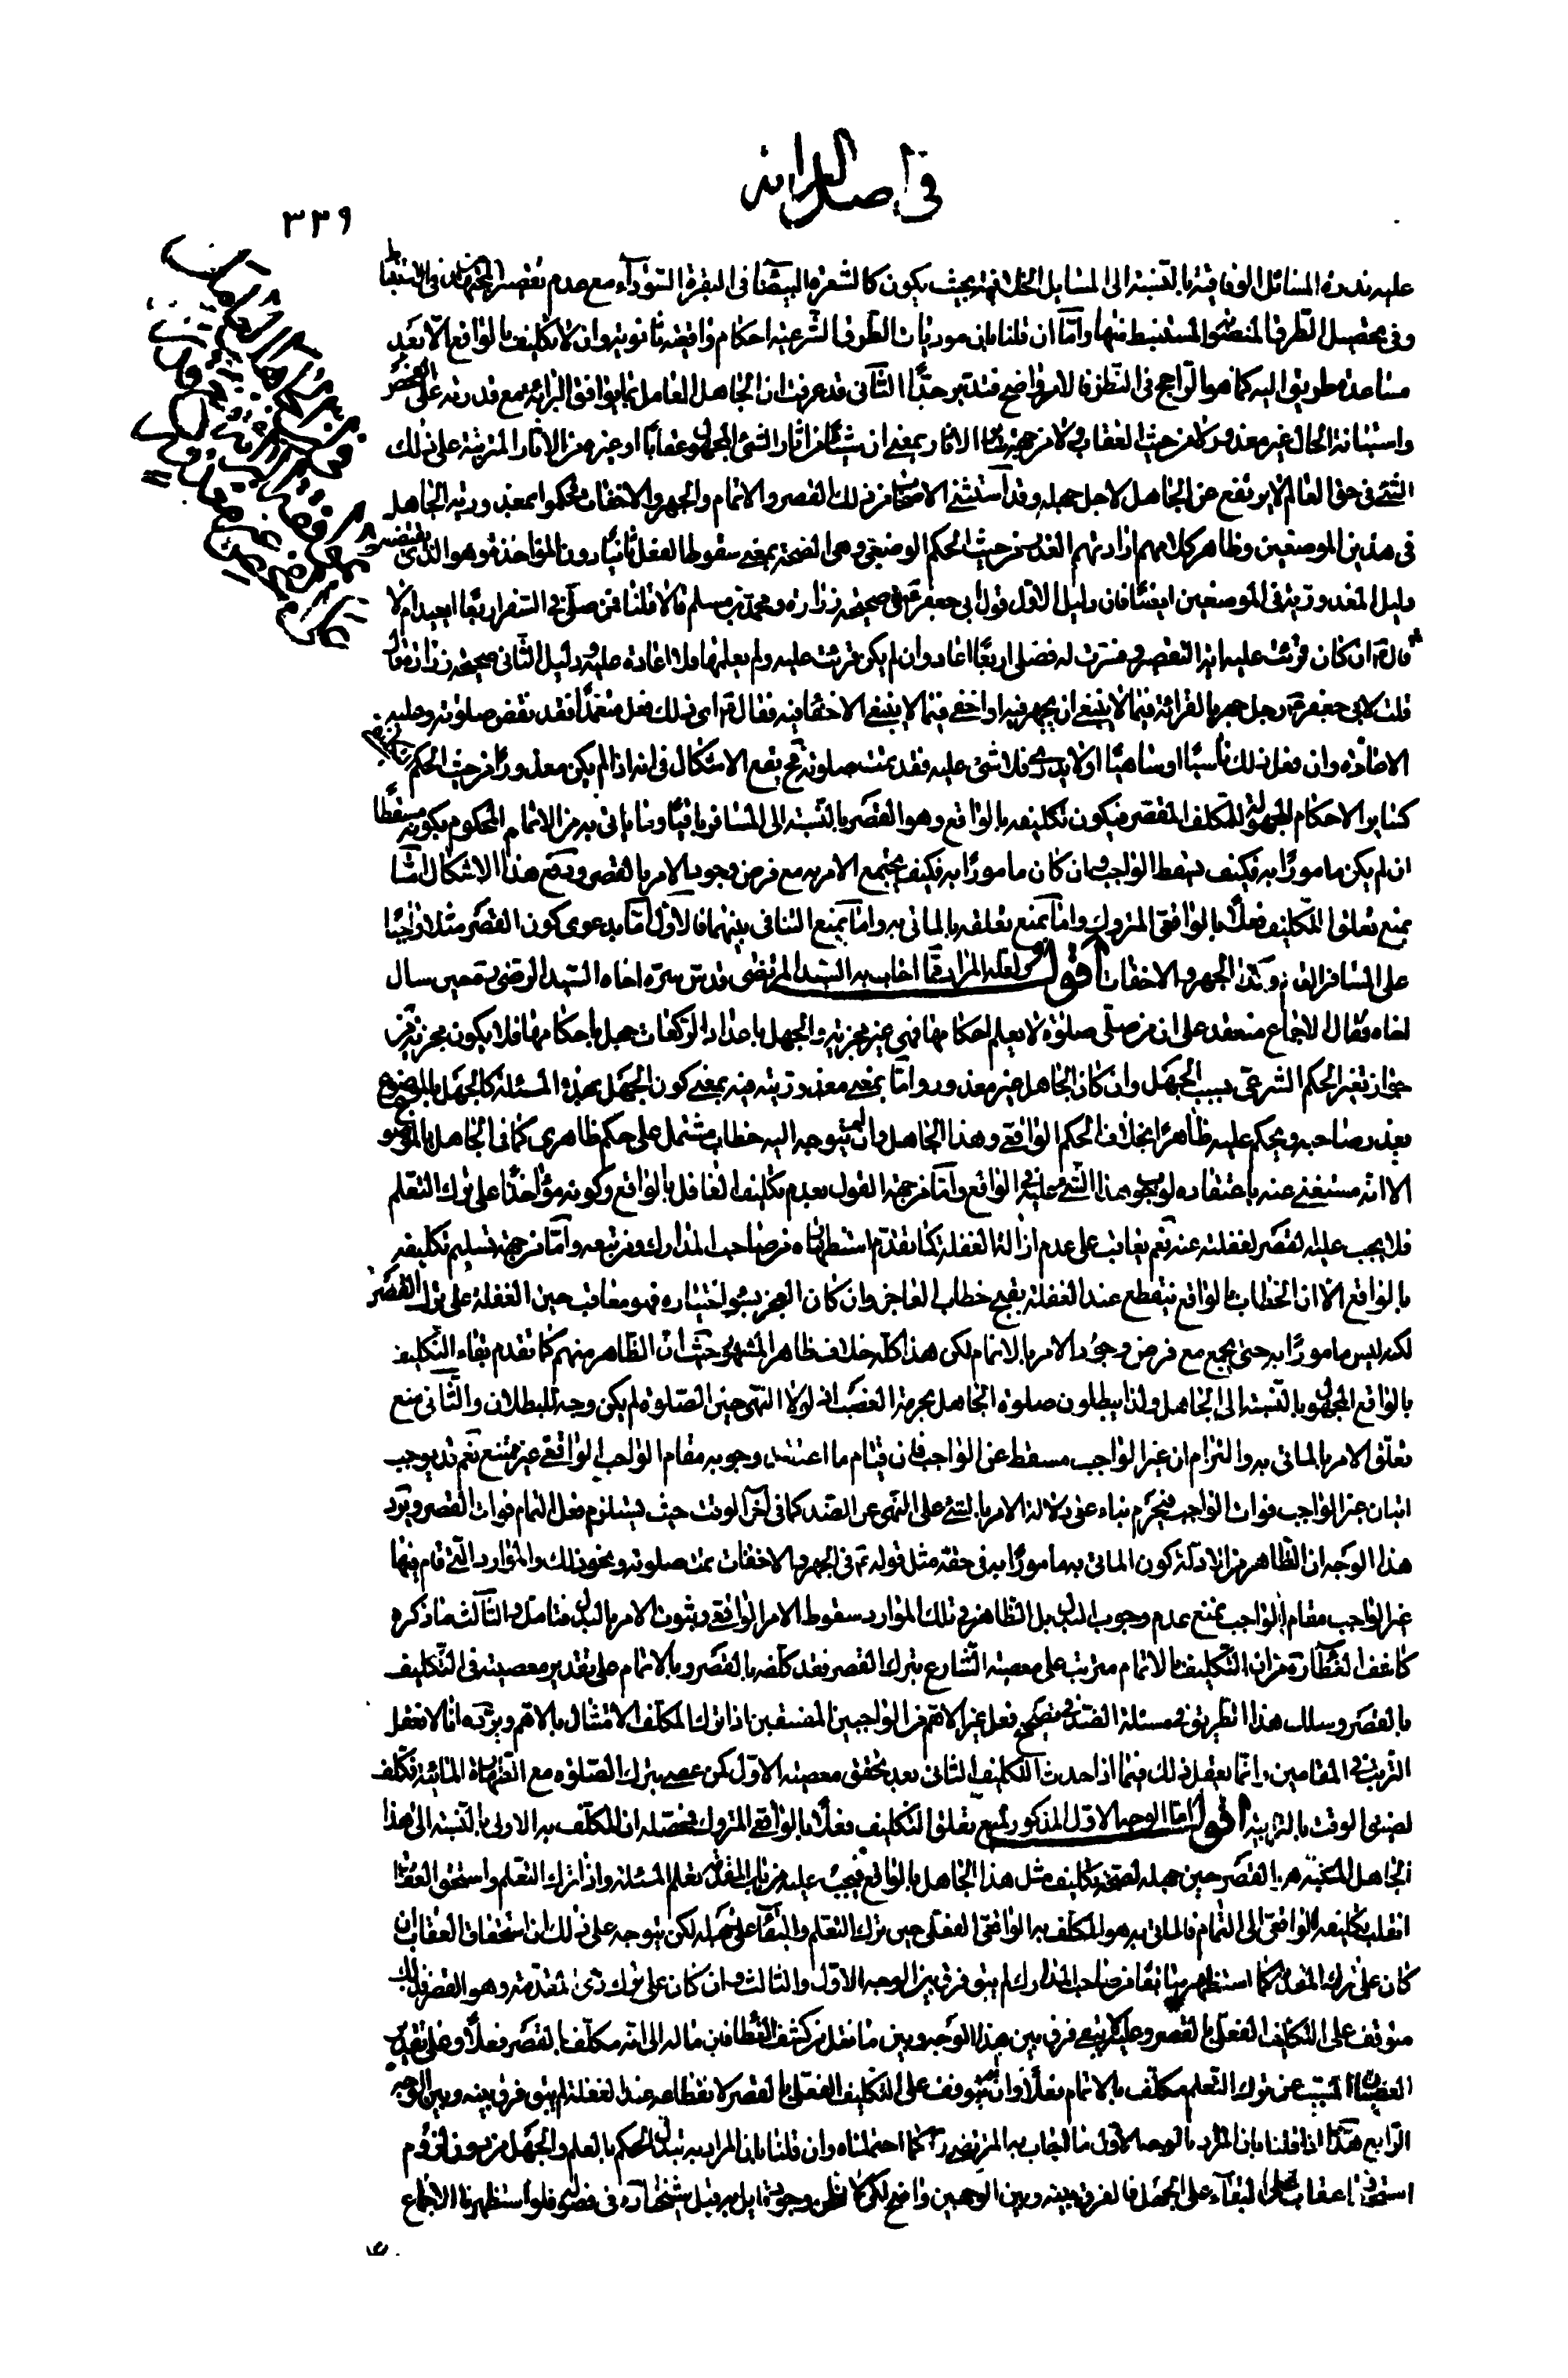 في اصالة البرائة
٣٣٩
عليه ندرة المسائل الوفاقية بالنسبة الى المسايل الخلافية بحيث يكون كالشعرة البيضاء في البقرة السوداء مع عدم تقصير المجتهدين في الاستنباط
وفي تحصيل الطرق المنصوبة المستنبط منها واما ان قلنا بان موديات الطرق الشرعية احكام واقعية ثانوية وان لا تكليف بالواقع الا بعد
مساعدة طريق اليه كما هو الراجح في النظر فالامر واضح فتدبر جدا الثاني قد عرفت ان الجاهل العامل بما يوافق البرائة مع قدرته على الفحص
واستبانة الحال غير معذور لا من حيث العقاب ولا من جهة ساير الاثار بمعنى ان شيئا من اثار الشئ المجهول عقابا او غيره من الاثار المترتبة على ذلك
الشئ في حق العالم لا يرتفع عن الجاهل لاجل جهله وقد استثنى الاصحاب من ذلك القصر والاتمام والجهر والاخفات فحكموا بمعذورية الجاهل
في هذين الموضعين وظاهر كلامهم ارادتهم العذر من حيث الحكم الوضعي وهي الصحة بمعنى سقوط الفعل ثانيا دون المؤاخذة وهو الذي يقتضيه
دليل المعذورية في الموضعين ايضا فان دليل الاول قول ابي جعفر في صحيحة زرارة ومحمد بن مسلم قالا قلنا فمن صلى في السفر اربعا ايعيد ام لا
قال ان كان قرئت عليه اية التقصير وفسرت له فصلى اربعا اعاد وان لم يكن قرئت عليه ولم يعلمها فلا اعادة عليه ودليل الثاني صحيحة زرارة قال
قلت لابي جعفر رجل جهر بالقرائة فيما لا ينبغي ان يجهر فيه او اخفى فيما لا ينبغي الاخفاء فيه فقال اى ذلك فعل متعمدا فقد نقض صلوته وعليه
الاعادة وان فعل ذلك ناسيا او ساهيا او لا يدرى فلا شئ عليه فقد تمت صلوته فح يقع الاشكال في انه اذا لم يكن معذورا من حيث الحكم
كساير الاحكام المجهولة للمكلف المقصر فيكون تكليفه بالواقع وهو القصر بالنسبة الى المسافر باقيا وما ياتى به من الاتمام المحكوم بكونه مسقطا
ان لم يكن مامورا به فكيف يسقط الواجب وان كان مامورا به فكيف يجتمع الامر به مع فرض وجود الامر بالقصر ودفع هذا الاشكال اما
بمنع تعلق التكليف فعلا بالواقعى المتروك واما بمنع تعلقه بالماتى به واما بمنع التنافى بينهما فالاول اما بدعوى كون القصر مثلا واجبا
على المسافر العالم وكذا الجهر والاخفات اقول لعله المراد مما اجاب به السيد المرتضى قدس سره اخاه السيد الرضى ره حين سال
اخاه فقال الاجماع منعقد على ان من صلى صلوة لا يعلم احكامها فهى غير مجزية والجهل باعداد الركعات جهل باحكامها فلا يكون مجزية من
جواز تغير الحكم الشرعى بسبب الجهل وان كان الجاهل غير معذور واما بمعنى معذوريته فيه بمعنى كون الجهل بهذه المسئلة كالجهل بالموضوع
يعذر صاحبه ويحكم عليه ظاهرا بخلاف الحكم الواقعى وهذا الجاهل وان لم يتوجه اليه خطاب مشتمل على حكم ظاهرى كما في الجاهل بالموضوع
الا انه مستغنى عنه باعتقاده لوجوب هذا الشئ عليه في الواقع واما من جهة القول بعدم تكليف الغافل بالواقع وكونه مؤاخذا على ترك التعلم
فلا يجب عليه القصر لغفلته عنه نعم يعاقب على عدم ازالة الغفلة كما تقدم استظهاره من صاحب المدارك ومن تبعه واما من جهة تسليم تكليفه
بالواقع الا ان الخطاب بالواقع ينقطع عند الغفلة بقبح خطاب العاجز وان كان العجز بسوء اختياره فهو معاقب حين الغفلة على ترك القصر
لكنه ليس مامورا به حتى يجمع مع فرض وجود الامر بالاتمام لكن هذا كله خلاف ظاهر المشهور حيث ان الظاهر منهم كما تقدم بقاء التكليف
بالواقع المجهول بالنسبة الى الجاهل ولذا يبطلون صلوة الجاهل بحرمة الغصب اذ لولا النهى حين الصلوة لم يكن وجه للبطلان والثانى منع
تعلق الامر بالماتى به والتزام ان غير الواجب مسقط عن الواجب فان قيام ما اعتقد وجوبه مقام الواجب الواقعى غير ممتنع نعم قد يوجب
اتيان غير الواجب فوات الواجب فيحرم بناء على دلالة الامر بالشئ على النهى عن الضد كما في آخر الوقت حيث يستلزم فعل التمام فوات القصر ويرد
هذا الوجه ان الظاهر من الادلة كون الماتى به مامورا به في حقه مثل قوله في الجهر والاخفات تمت صلوته ونحو ذلك والموارد التى قام فيها
غير الواجب مقام الواجب نمنع عدم وجوب البدل بل الظاهر في تلك الموارد سقوط الامر الواقعى وثبوت الامر بالبدل فتامل والثالث ما ذكره
كاشف الغطاء ره من ان التكليف بالاتمام مترتب على معصية الشارع بترك القصر فقد كلفه بالقصر وبالاتمام على تقدير معصيته في التكليف
بالقصر وسلك هذا الطريق في مسئلة الضد في تصحيح فعل غير الاهم من الواجبين المضيقين اذا ترك المكلف الامتثال بالاهم ويرده انا لا نعقل
الترتب في المقامين وانما يعقل ذلك فيما اذا حدث التكليف الثانى بعد تحقق معصية الاول كمن عصى بترك الصلوة مع الطهارة المائية فكلف
لضيق الوقت بالترابية اقول اما الوجه الاول المذكور لمنع تعلق التكليف فعلا بالواقعى المتروك فمحصله ان المكلف به الاولى بالنسبة الى هذا
الجاهل هو القصر حين جهله لصحة تكليف مثل هذا الجاهل بالواقع فيجب عليه من باب المقدمة تعلم المسئلة واذا ترك التعلم واستحق العقاب
انقلب تكليفه الواقعى الى التمام فالماتى به هو المكلف به الواقعى الفعلى حين ترك التعلم والبقاء على جهله لكن يتوجه على ذلك ان استحقاق العقاب ان
كان على ترك المقدمة كما استظهر سابقا من صاحب المدارك لم يبق فرق بين الوجه الاول والثالث وان كان على ترك ذى المقدمة وهو القصر فذلك
متوقف على التكليف الفعلى بالقصر وعليه لا يبقى فرق بين هذا الوجه وبين ما نقل من كشف الغطاء فان ماله الى انه مكلف بالقصر فعلا وعلى تقدير
العصيان المسبب عن ترك التعلم مكلف بالاتمام فعلا وان لم يتوقف على التكليف الفعلى بالقصر لانقطاعه عند الغفلة لم يبق فرق بينه وبين الوجه
الرابع هذا اذا قلنا بان المراد بالوجه الاول ما اجاب به المرتضى ره كما احتملناه وان قلنا بان المراد به تبدل الحكم بالعلم والجهل من دون لزوم
استحقاق عقاب على البقاء على الجهل فالفرق بينه وبين الوجهين واضح لكن لا نظن وجود قايل به قبل شيخنا ره في فصوله فلو استظهرنا الاجماع